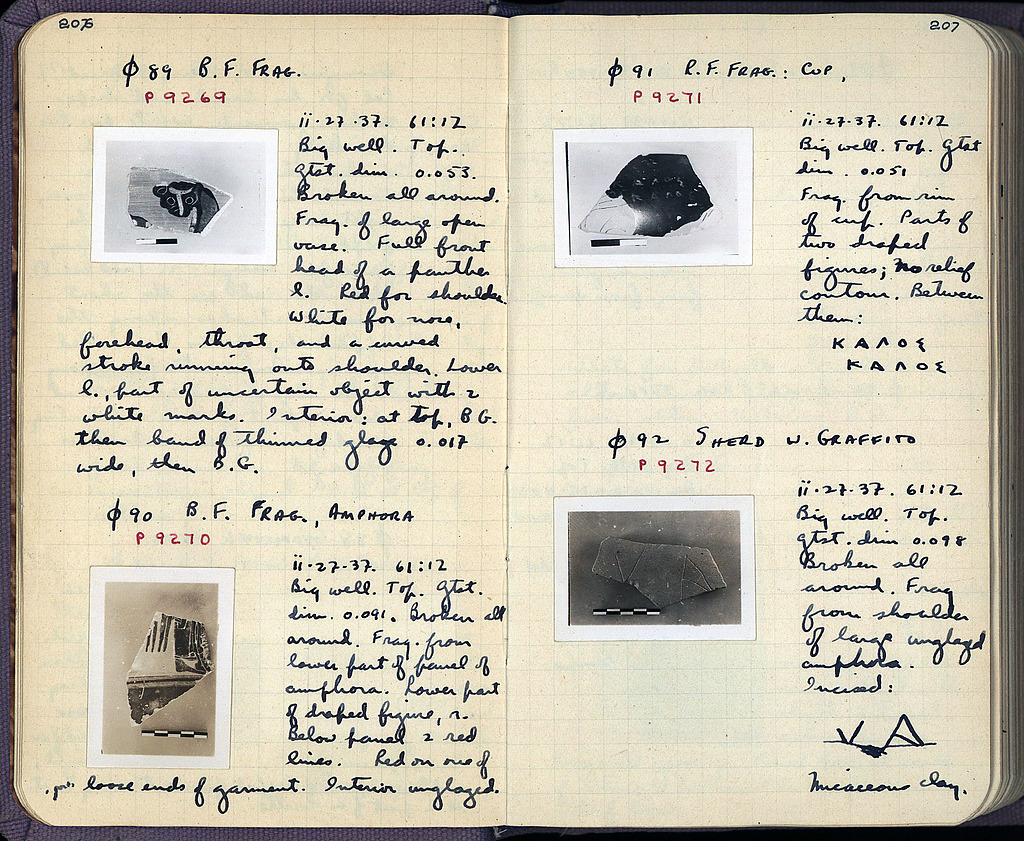 206
ϕ 89 B.F. FRAG.
P 9269
ii·27·37. 61:12
Big well. Top.
Gtst. dim. 0.053.
Broken all around.
Frag. of large open
vase. Full front
head of a panther
l. Red for shoulder.
White for nose,
forehead, throat, and a curved
stroke running onto shoulder. Lower
l., part of uncertain object with 2
white marks. Interior: at top, B.G.
then band of thinned glaze 0.017
wide, then B.G.
ϕ 90 B.F. FRAG., AMPHORA
P 9270
ii·27·37. 61:12
Big well. Top. Gtst.
dim. 0.091. Broken all
around. Frag. from
lower part of panel of
amphora. Lower part
of draped figure, r.
Below panel 2 red
lines. Red on one of
loose ends of garment. Interior unglazed.
207
ϕ 91 R.F. FRAG.: CUP,
P 9271
ii·27·37. 61:12
Big well. Top. Gtst
dim. 0.051
Frag. from rim
of cup. Parts of
two draped
figures; no relief
contour. Between
them:
ΚΑΛΟΣ
ΚΑΛΟΣ
ϕ 92 SHERD W. GRAFFITO
P 9272
ii·27·37. 61:12
Big well. Top.
Gtst. dim 0.098
Broken all
around. Frag
from shoulder
of large unglazed
amphora.
Incised:
Micaceous clay.